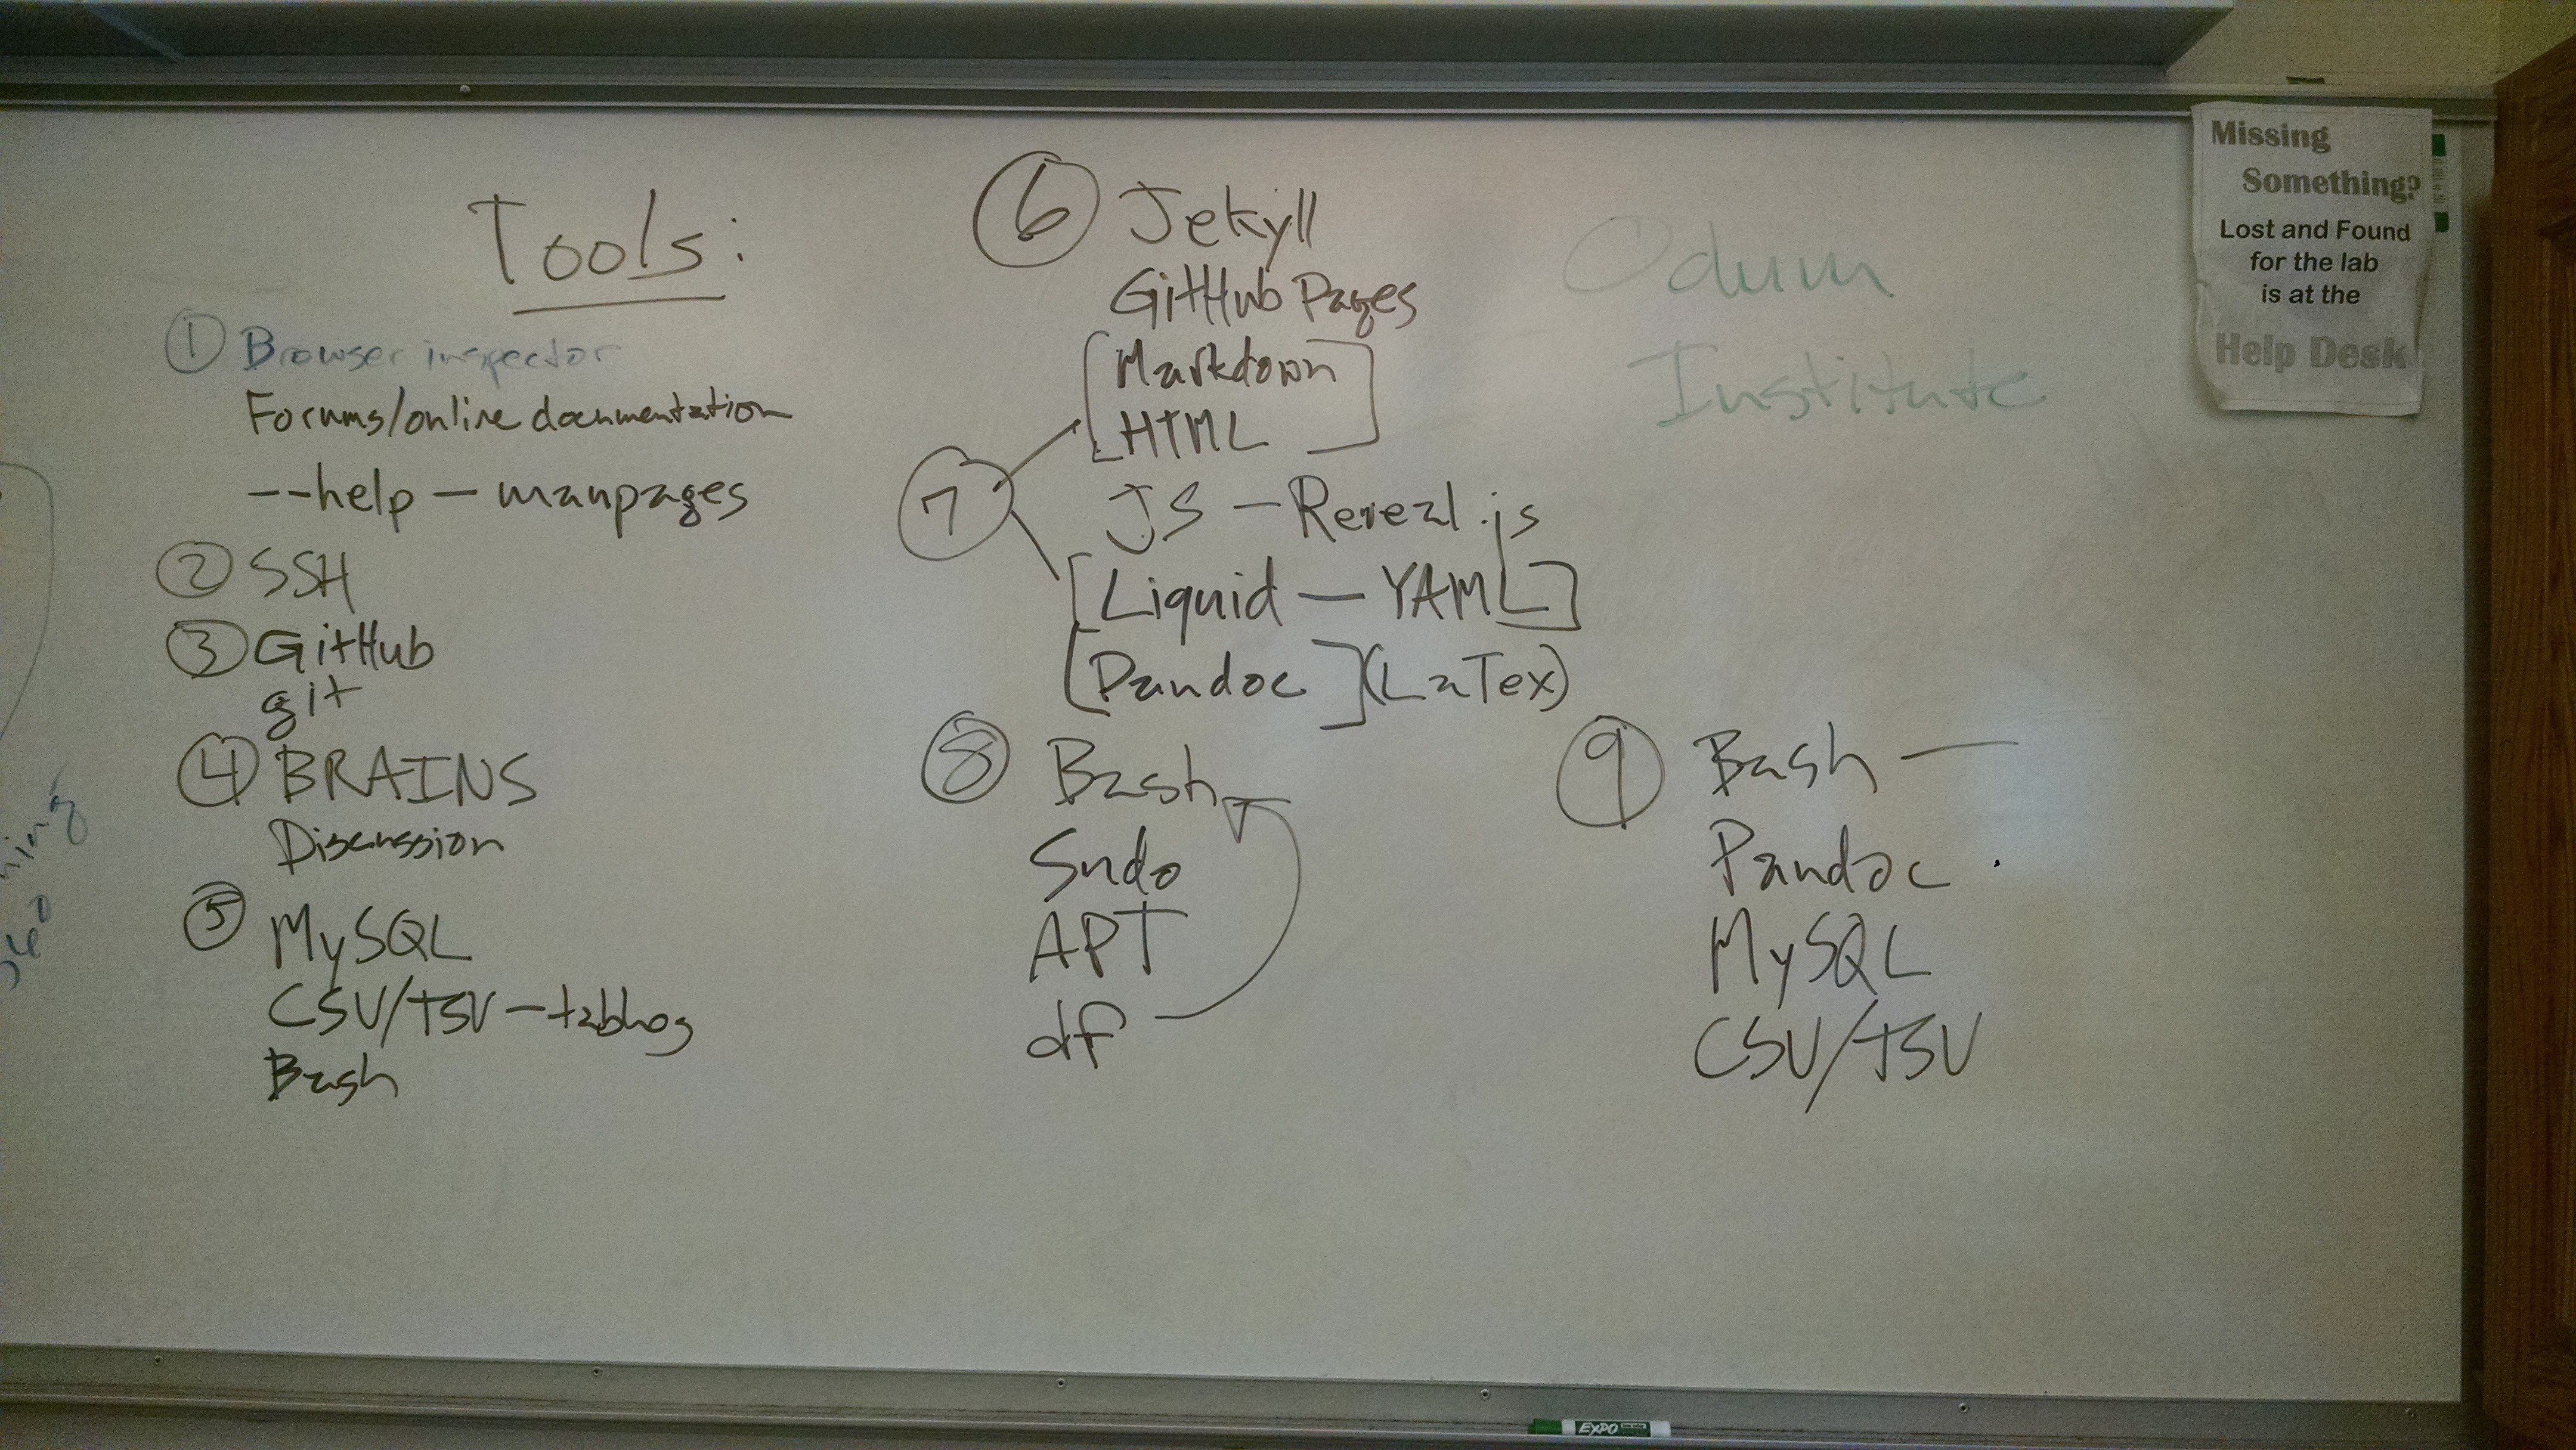 Tools:
① Browser inspector
Forums/online documentation
--help — manpages
② SSH
③ GitHub
git
④ BRAINS
Discussion
⑤ MySQL
CSV/TSV — tables
Bash
⑥ Jekyll
GitHub Pages
[Markdown
HTML]
⑦
JS — Reveal.js
[Liquid — YAML]
[Pandoc] (LaTex)
⑧ Bash
Sudo
APT
df
⑨ Bash —
Pandoc
MySQL
CSV/TSV
Odum
Institute
Missing
Something?
Lost and Found
for the lab
is at the
Help Desk
EXPO